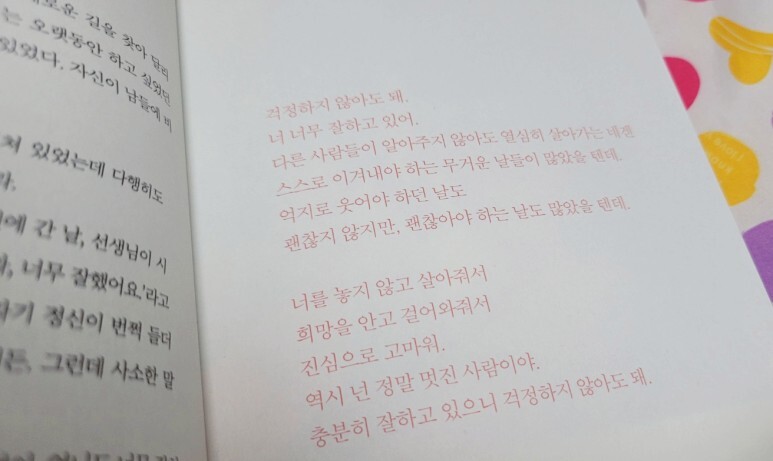 새로운 길을 찾아 달리
는 오랫동안 하고 싶었던
있었다. 자신이 남들에 비
쳐 있었는데 다행히도
다.
에 간 날, 선생님이 시
너무 잘했어요.'라고
자기 정신이 번쩍 들더
든, 그런데 사소한 말
걱정하지 않아도 돼.
너 너무 잘하고 있어.
다른 사람들이 알아주지 않아도 열심히 살아가는 네겐
스스로 이겨내야 하는 무거운 날들이 많았을 텐데.
억지로 웃어야 하던 날도
괜찮지 않지만, 괜찮아야 하는 날도 많았을 텐데.
너를 놓지 않고 살아줘서
희망을 안고 걸어와줘서
진심으로 고마워.
역시 넌 정말 멋진 사람이야.
충분히 잘하고 있으니 걱정하지 않아도 돼.